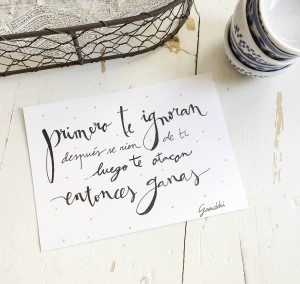 primero te ignoran
después se ríen de ti
luego te atacan
entonces ganas
Gandhi